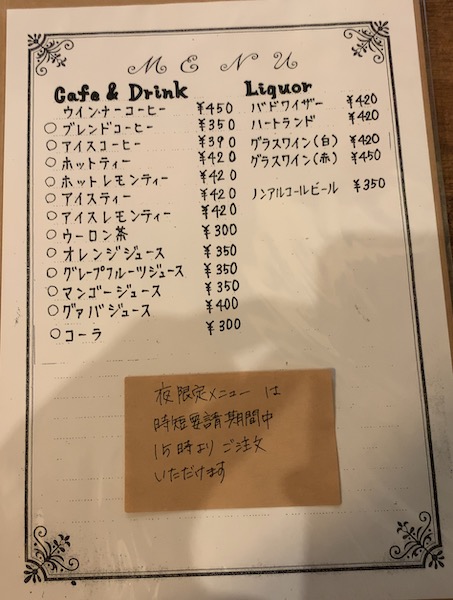 MENU
Cafe & Drink
ウインナーコーヒー ¥450
○ブレンドコーヒー ¥350
○アイスコーヒー ¥390
○ホットティー ¥420
○ホットレモンティー ¥420
○アイスティー ¥420
○アイスレモンティー ¥420
○ウーロン茶 ¥300
○オレンジジュース ¥350
○グレープフルーツジュース ¥350
○マンゴージュース ¥350
○グァバジュース ¥400
○コーラ ¥300
Liquor
バドワイザー ¥420
ハートランド ¥420
グラスワイン(白) ¥420
グラスワイン(赤) ¥450
ノンアルコールビール ¥350
夜限定メニューは
時短要請期間中
15時よりご注文
いただけます